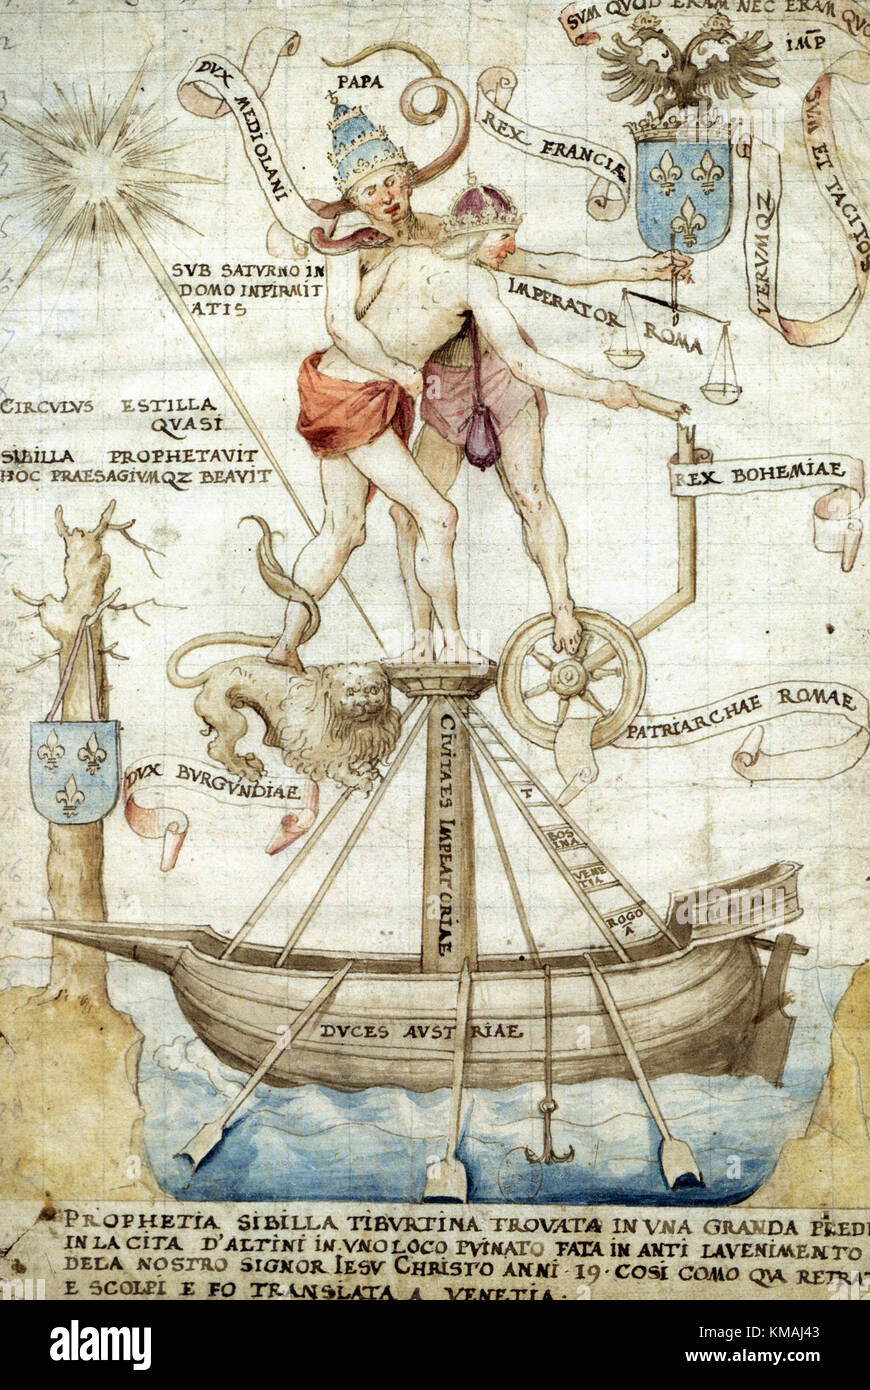 SVM QVOD ERAM NEC ERAM QVO
IMP
SVM ET TACITOS
VERVMQZ
PAPA
DVX MEDIOLANI
REX FRANCIÆ
SVB SATVRNO IN
DOMO INFIRMIT
ATIS
IMPERATOR
ROMA
CIRCVLVS ESTILLA
QVASI
SIBILLA PROPHETAVIT
HOC PRAESAGIVMQZ BEAVIT
REX BOHEMIAE
PATRIARCHAE ROMAE
DVX BVRGVNDIAE
CIVITAES IMPEATORIAE
BOS
INA
VENE
TIA
ROGO
A
DVCES AVSTRIAE
PROPHETIA SIBILLA TIBVRTINA TROVATA IN VNA GRANDA PIEDI
IN LA CITA D'ALTINI IN VNO LOCO PVINATO FATA IN ANTI LAVENIMENTO
DELA NOSTRO SIGNOR IESV CHRISTO ANNI · 19 · COSI COMO QVA RETRAT
E SCOLPI E FO TRANSLATA A VENETIA ·
alamy stock photo
KMAJ43
www.alamy.com